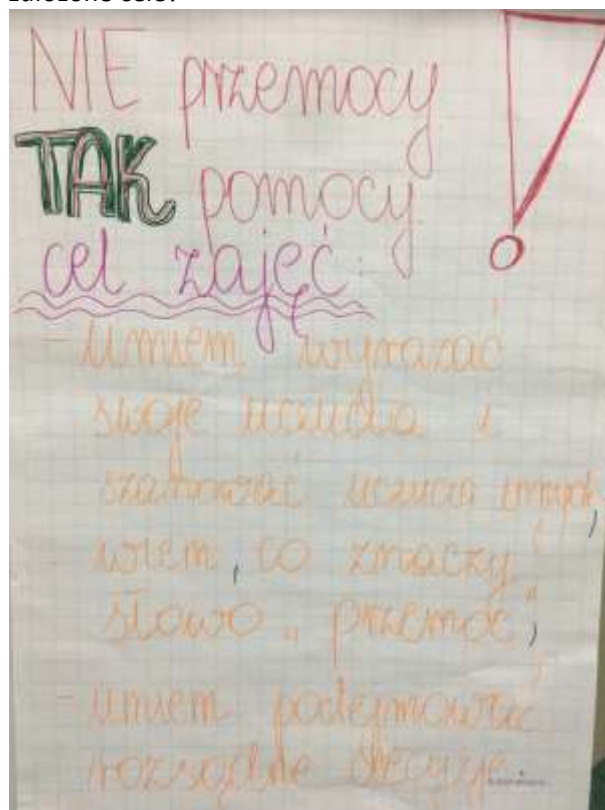 założone cele.
NIE przemocy !
TAK pomocy.
cel zajęć:
- umiem wyrażać
swoje uczucia i
szanować uczucia innych,
wiem, co znaczy
słowo „przemoc”,
- umiem podejmować
rozsądne decyzje